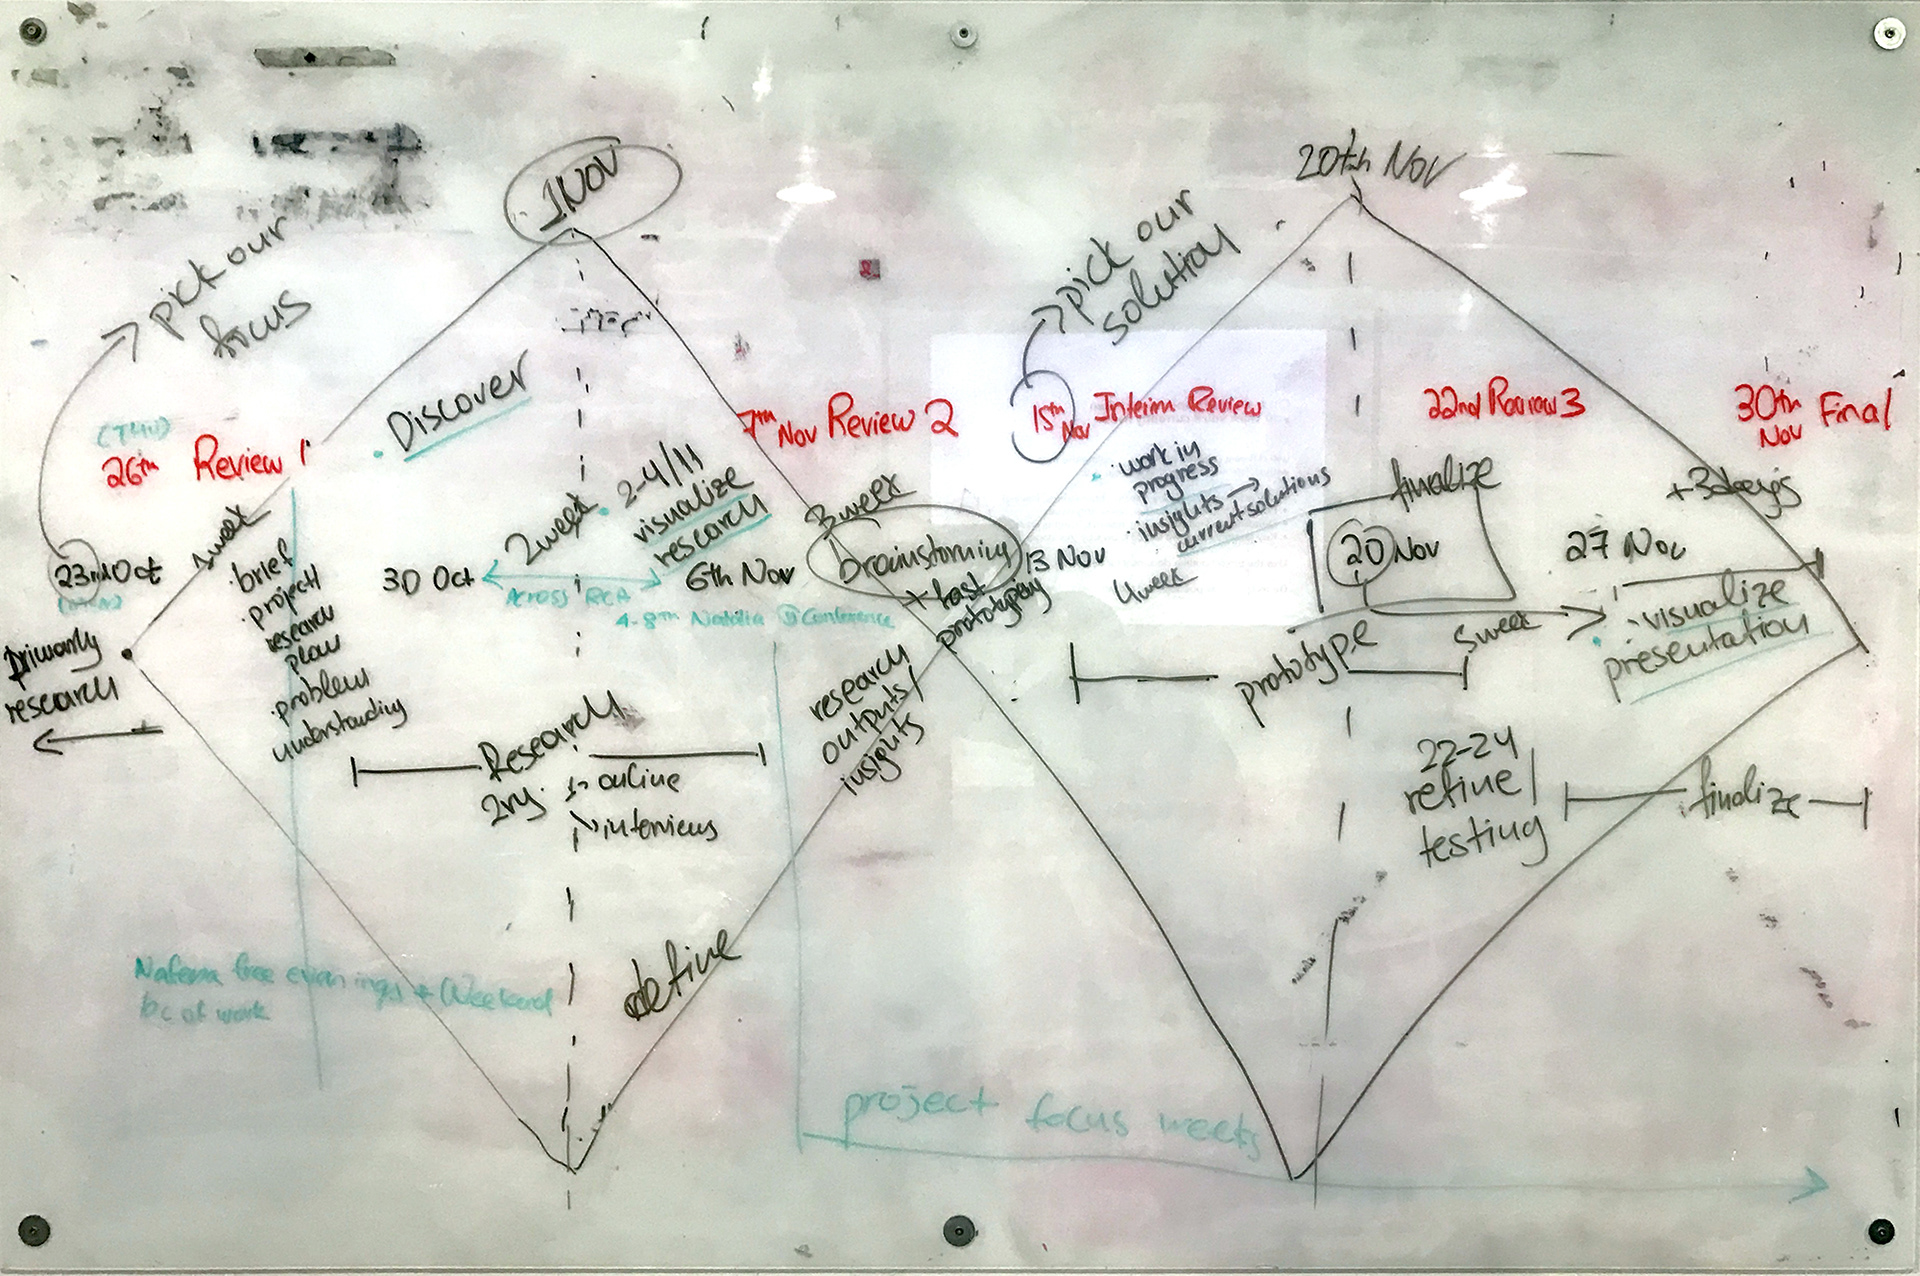 1 Nov
20th Nov
pick our
focus
pick our
solution
Discover
(THU)
26th Review 1
7th Nov Review 2
15th Nov Interim Review
22nd Review 3
30th Nov Final
1 week
2 week
2-4/11
visualize
research
3 week
work in
progress
insights →
current solutions
finalize
+3 days
23rd Oct
brief
project
research
plan
problem
understanding
30 Oct
Across RCA
6th Nov
4-8th Natalia @Conference
brainstorming
+ fast
prototyping
13 Nov
4 week
20 Nov
27 Nov
5 week
visualize
presentation
research
prototype
research
outputs/
insights
Research
2ry.
online
interviews
22-24
refine/
testing
finalize
define
free evenings + Weekend
bc of work
project focus weeks